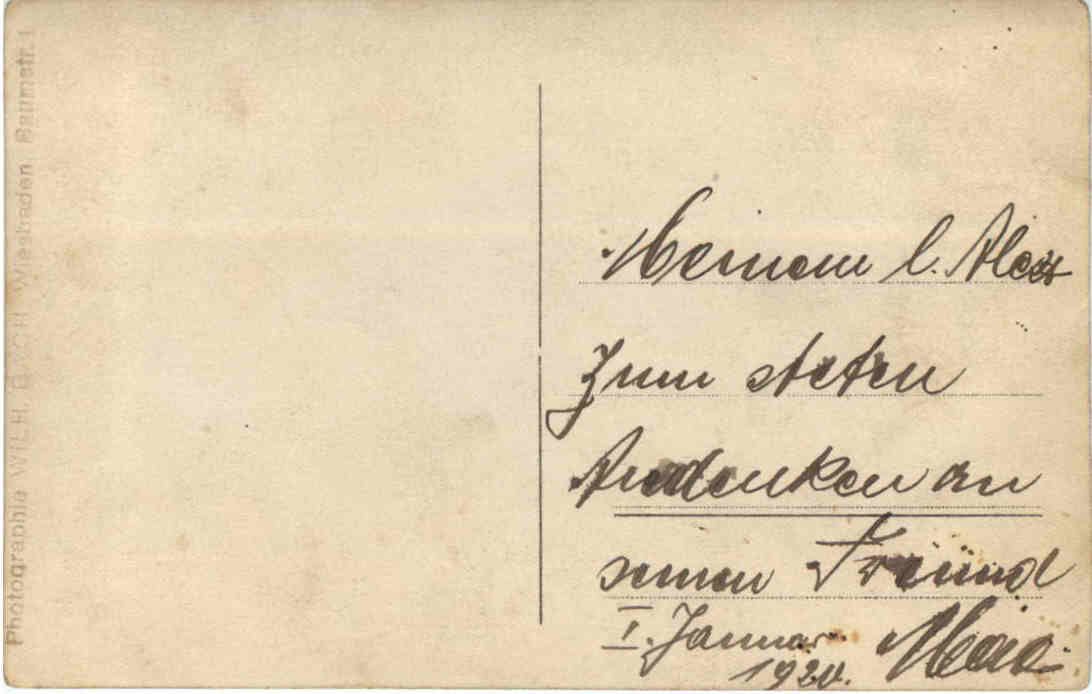 Photographie WILH. Wiesbaden, Baumstr. 1
Meinem l. Alex
Zum steten
Andenken an
seinen Freund
I. Januar
1920. Max